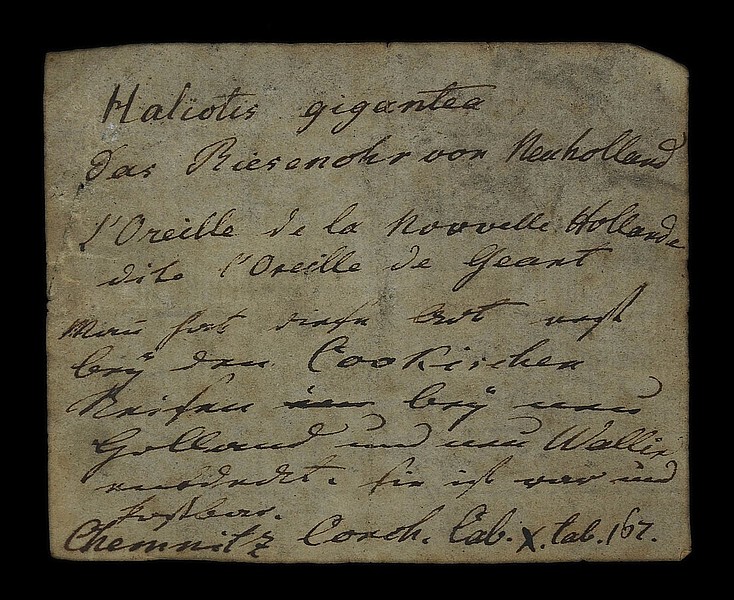 Haliotis gigantea
das Riesenohr von Neuholland
l'Oreille de la Nouvelle Hollande
dite l'Oreille de Geant
Man hat diese Art erst
bey den Cookischen
Reisen bey neu
Holland und neu Wallis
entdeckt. sie ist rar und
kostbar.
Chemnitz Conch. Cab. X. tab. 167.